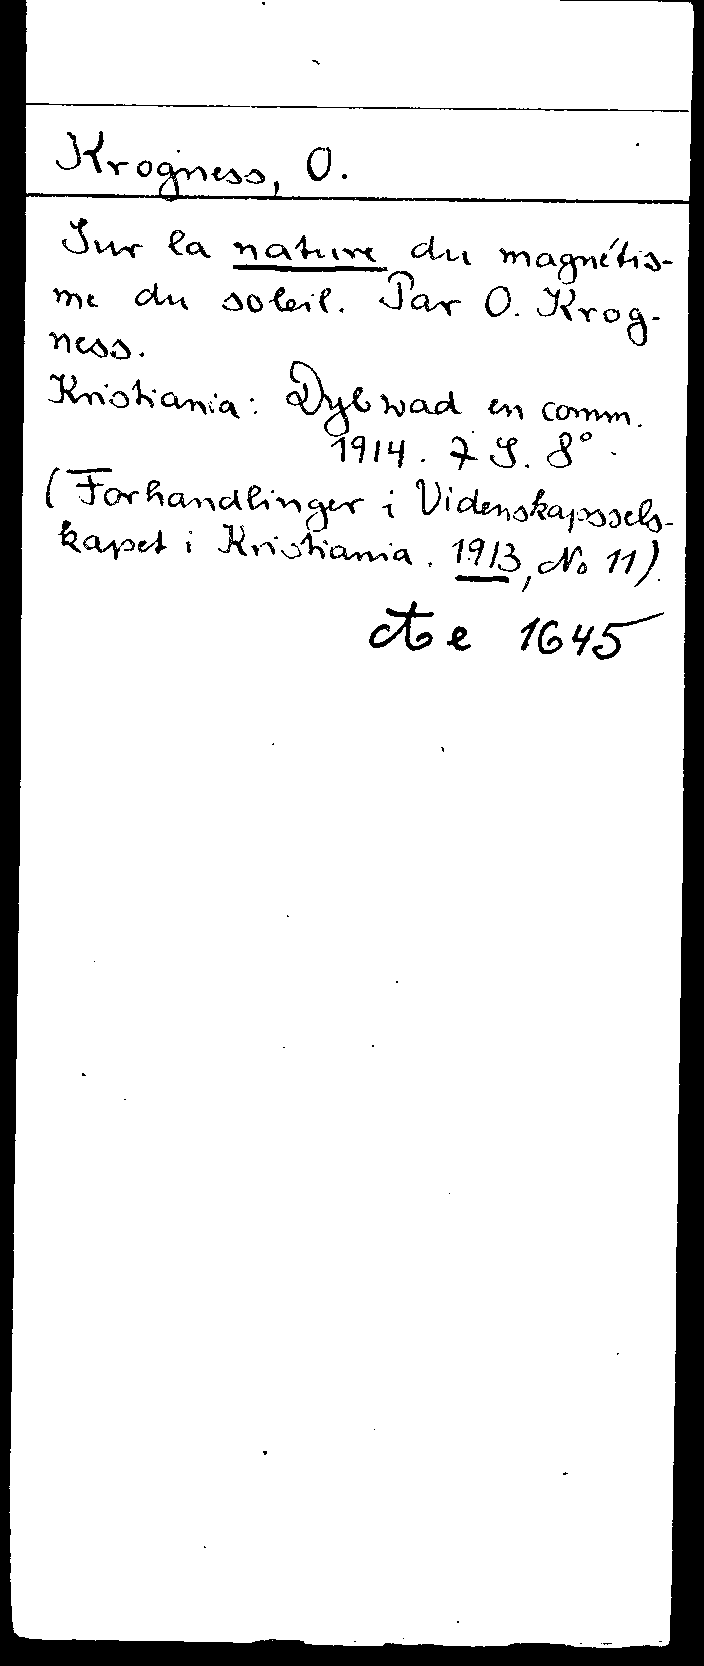 Krogness, O.
Sur la nature du magnétis-
me du soleil. Par O. Krog-
ness.
Kristiania: Dybwad en comm.
1914. 7 S. 8°.
(Forhandlinger i Videnskapssels-
kapet i Kristiania. 1913, No 11)
e 1645